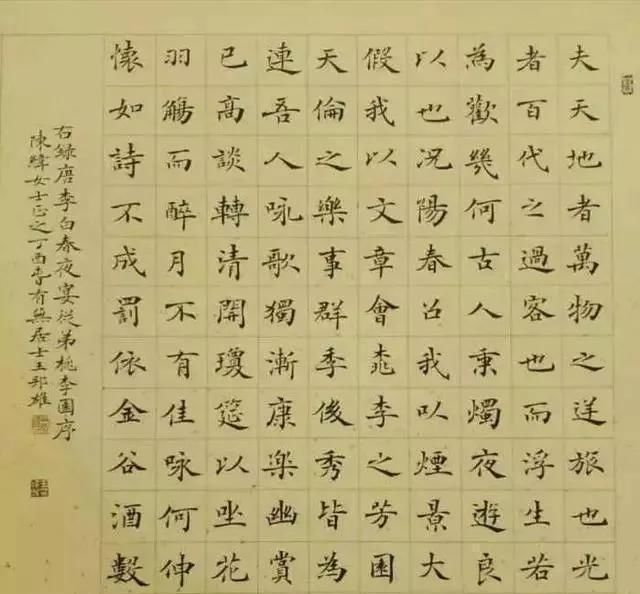 夫天地者萬物之逆旅也光
者百代之過客也而浮生若
為歡幾何古人秉燭夜遊良
以也況陽春召我以煙景大
假我以文章會桃李之芳園
天倫之樂事群季後秀皆為
連吾人咏歌獨漸康樂幽賞
已高談轉清開瓊筵以坐花
羽觴而醉月不有佳咏何伸
懷如詩不成罰依金谷酒數
右録唐李白春夜宴從弟桃李園序
陳緯女士正之丁酉春有無居士王邦雄